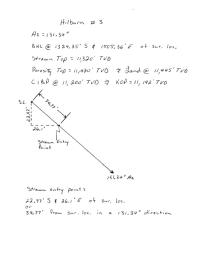 Hilburn # 3
Az = 131.34°
BHL @ 1324.35' S & 1505.36' E of sur. loc.
Stream Top = 11,320' TVD
Porosity Top = 11,430' TVD → Sand @ 11,445' TVD
CIBP @ 11,200' TVD → KOP = 11,192' TVD
SL
34.77'
22.97'
26.1'
Stream Entry
Point
131.34° Az
Stream entry point:
22.97' S & 26.1' E of sur. loc.
or
34.77' from sur. loc. in a 131.34° direction